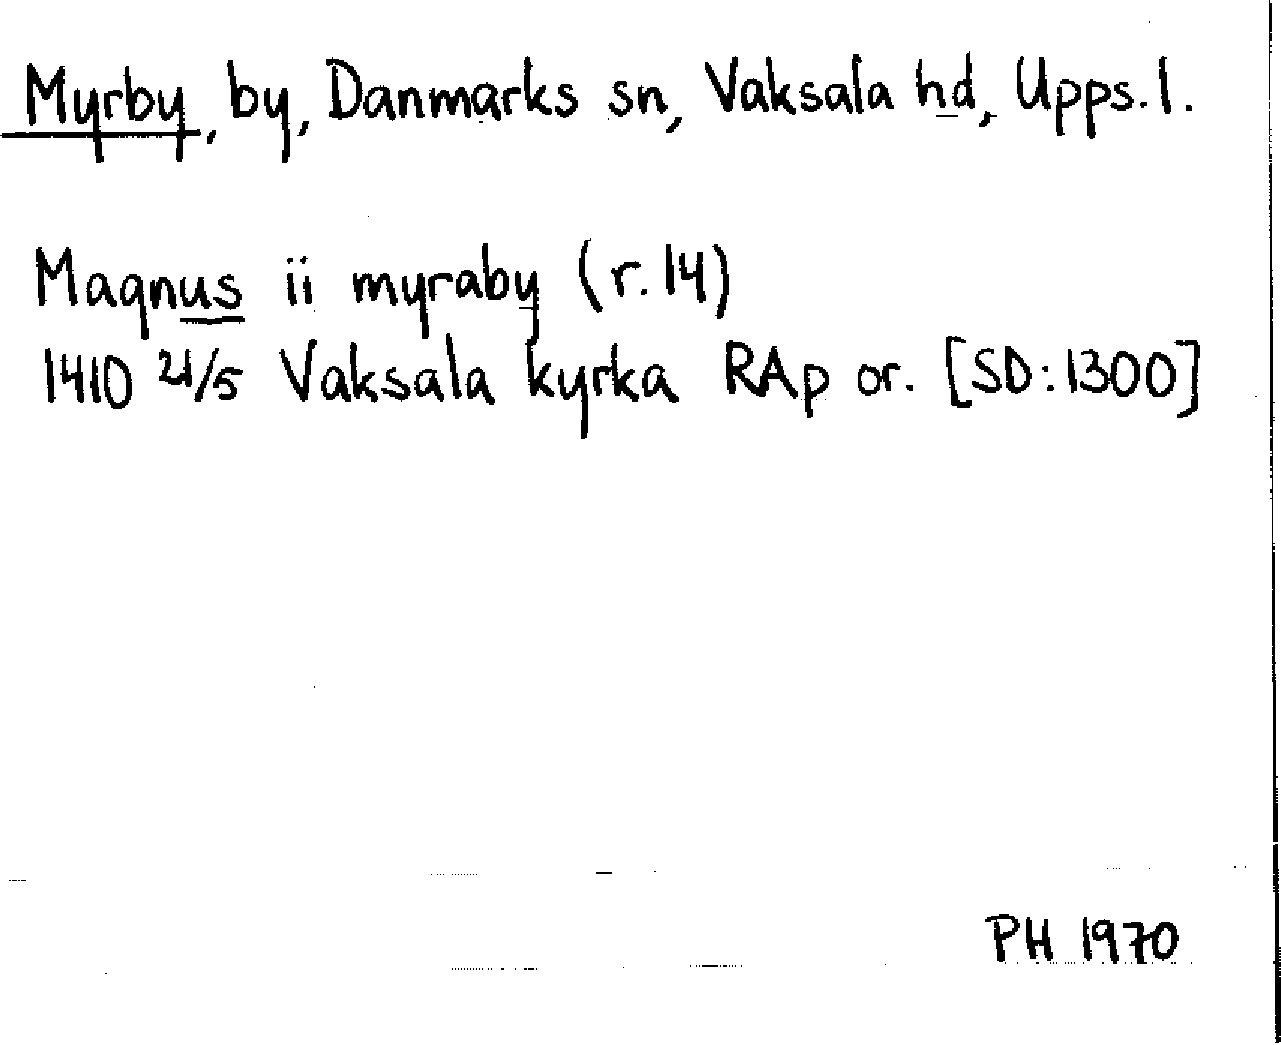 Myrby, by, Danmarks sn, Vaksala hd, Upps. l.
Magnus ii myraby (r. 14)
1410 21/5 Vaksala kyrka RAp or. [SD: 1300]
PH 1970